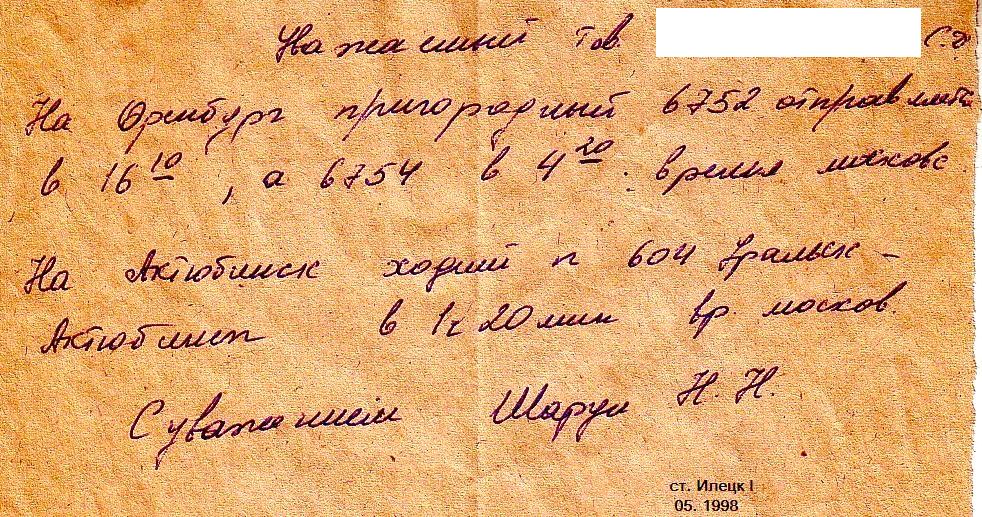 Уважаемый Тов. С.
На Оренбург пригородный 6752 отправлят
в 16 10, а 6754 в 4 20. время московс
На Актюбинск ходит п 604 Уральск –
Актюбинск в 1ч 20 мин вр. москов.
С уважением Шарун Н. Н.
ст. Илецк I
05. 1998